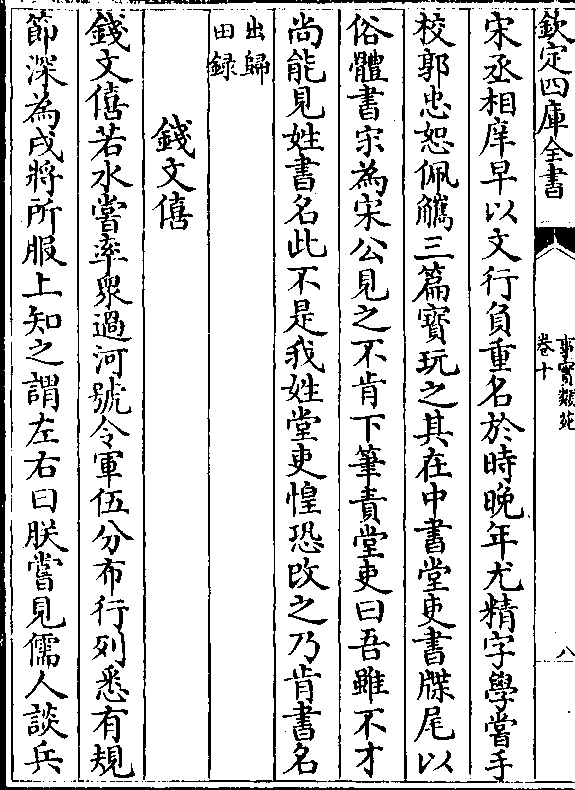 欽定四庫全書
事實類苑
卷十
八
宋丞相庠早以文行負重名於時晚年尤精字學嘗手
校郭忠恕佩觿三篇寶玩之其在中書堂吏書牒尾以
俗體書宋為宋公見之不肯下筆責堂吏曰吾雖不才
尚能見姓書名此不是我姓堂吏惶恐改之乃肯書名
出歸
田録
錢文僖
錢文僖若水嘗率衆過河號令軍伍分布行列悉有規
節深為戍將所服上知之謂左右曰朕嘗見儒人談兵